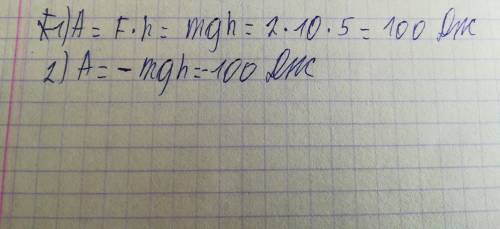 1) A = F · h = mgh = 2 · 10 · 5 = 100 Дж
2) A = - mgh = -100 Дж